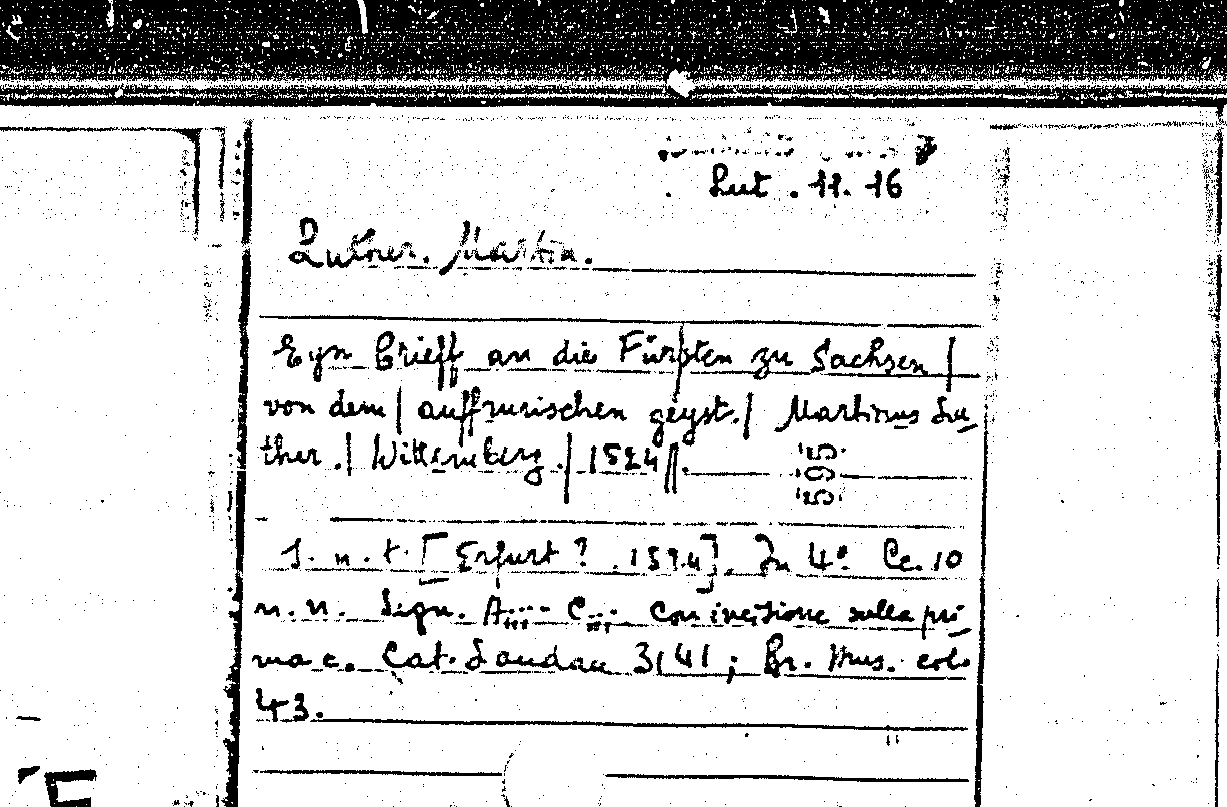 Lut. 11. 16
Luther. Martin.
Eyn Brieff an die Fürsten zu Sachsen |
von dem | auffrurischen geyst. | Martinus Lu-
ther. | Wittemberg. | 1524 ||.
595
S. n. t. [Erfurt? . 1524]. In 4° Cc. 10
n. n. Sign. A C con incisione sulla pri-
ma c. Cat. Landau 3141; Br. Mus. col.
43.
E